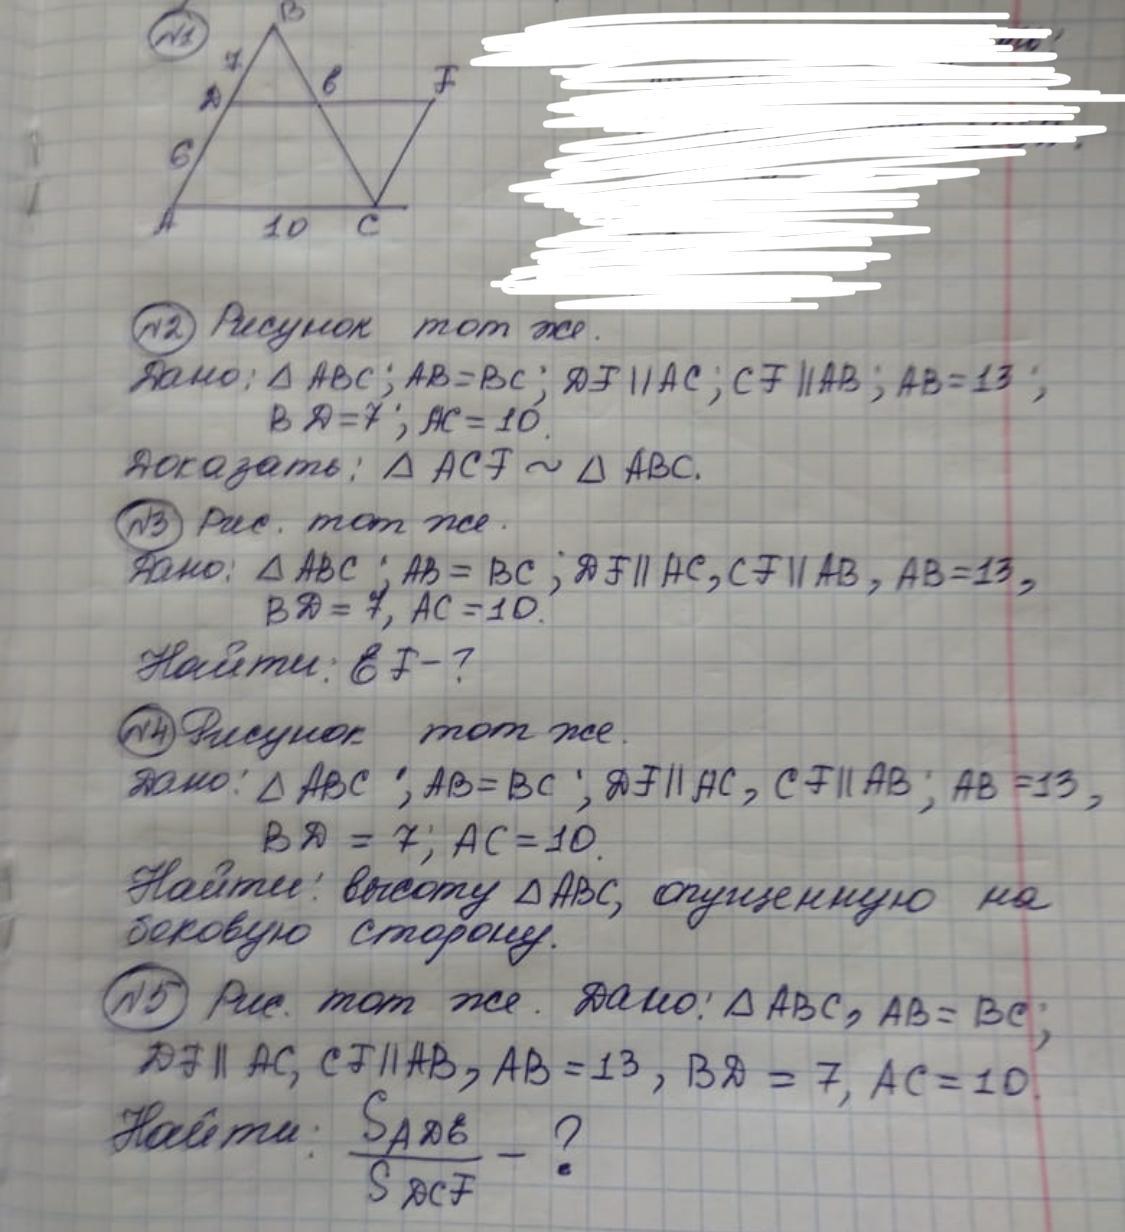 №1
B
7
D
E
F
6
A
10
C
№2 Рисунок тот же.
Дано: △ ABC; AB=BC; DF || AC; CF || AB; AB=13;
BD=7; AC=10.
Доказать: △ ACF ~ △ ABC.
№3 Рис. тот же.
Дано: △ ABC; AB = BC; DF || AC, CF || AB, AB=13,
BD = 7, AC=10.
Найти: EF-?
№4 Рисунок тот же.
Дано: △ ABC; AB=BC; DF || AC, CF || AB; AB=13,
BD = 7; AC=10.
Найти: высоту △ABC, опущенную на
боковую сторону.
№5 Рис. тот же. Дано: △ ABC, AB=BC;
DF || AC, CF || AB, AB=13, BD = 7, AC=10.
Найти: S ADE / S DCF - ?